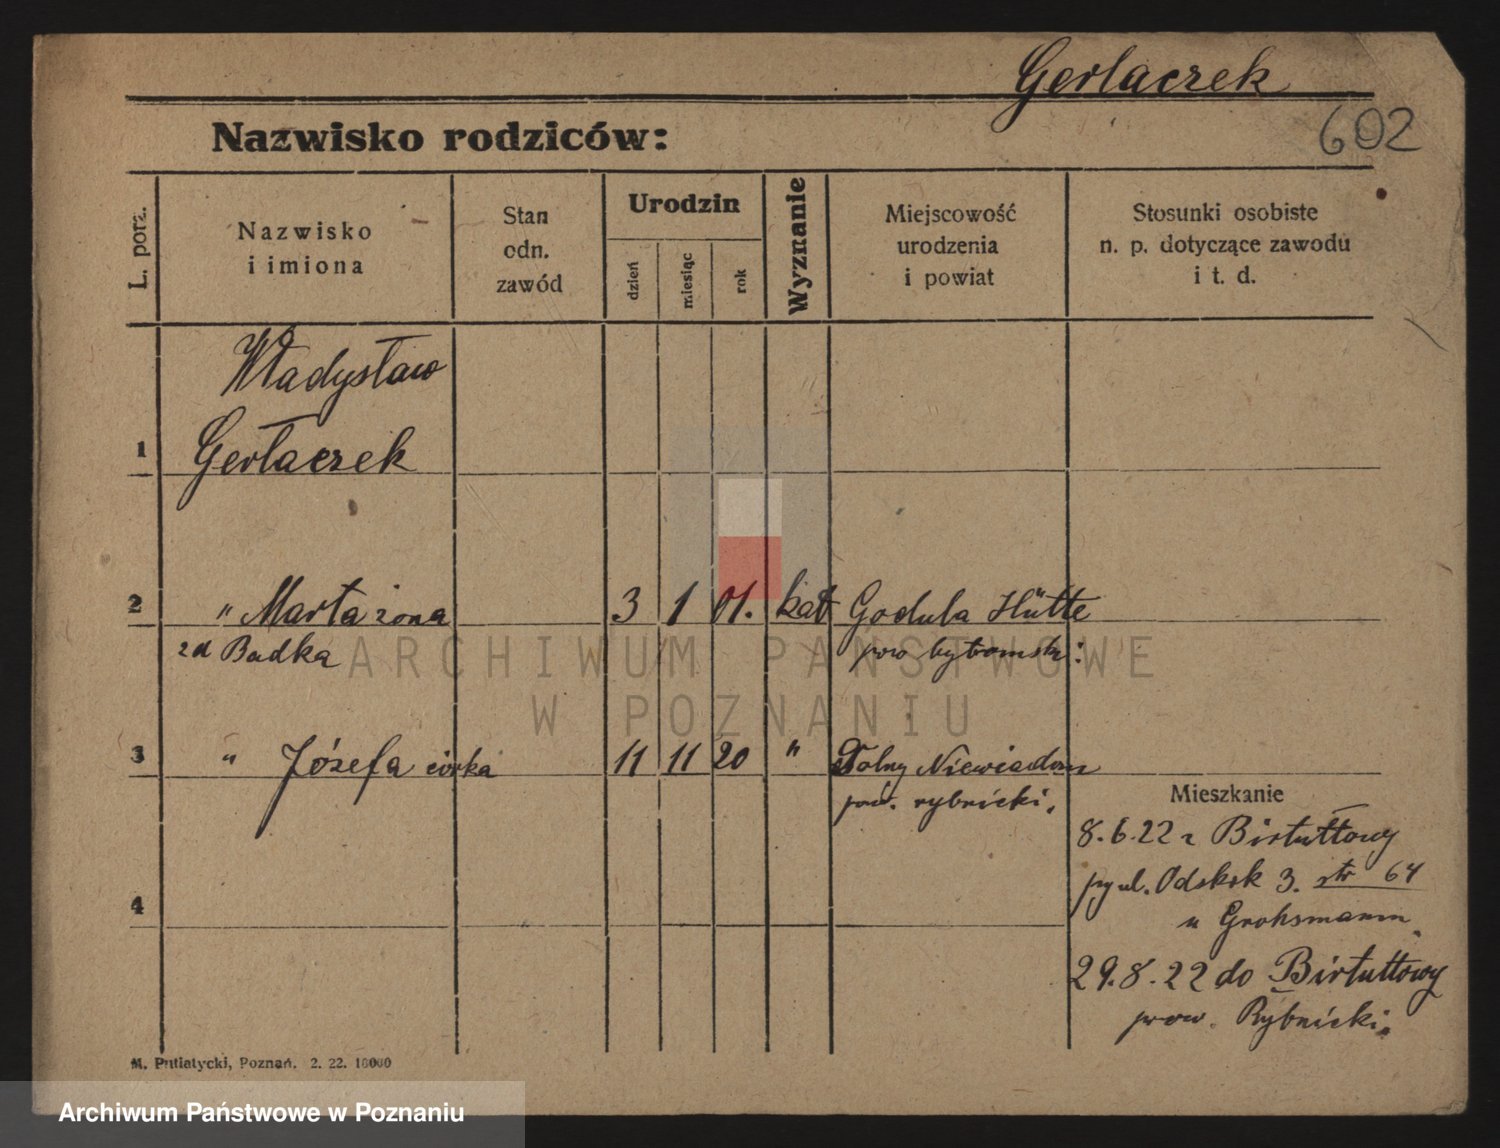 Gerlaczek
602
Nazwisko rodziców:
L. porz.
Nazwisko
i imiona
Stan
odn.
zawód
Urodzin
dzień
miesiąc
rok
Wyznanie
Miejscowość
urodzenia
i powiat
Stosunki osobiste
n. p. dotyczące zawodu
i t. d.
Władysław
1 Gerłaczek
2 " Marta żona 3 1 01. kat Godula Hütte
zd Badka pow bytomski
3 " Józefa córka 11 11 20 " Dolny Niewiadom
pow. rybnicki.
Mieszkanie
8.6.22 z Birtułtowy
str 64
4
u Grohsmann
29.8.22 do Birtułtowy
pow. Rybnicki.
M. Putiatycki, Poznań. 2. 22. 10000
ARCHIWUM PAŃSTWOWE
W POZNANIU
Archiwum Państwowe w Poznaniu